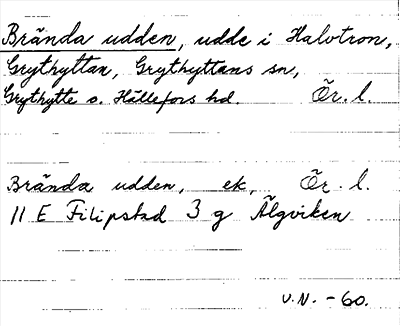 Brända udden, udde i Halvtron,
Grythyttan, Grythyttans sn,
Grythytte o. Hällefors hd. Ör. l.
Brända udden, ek, Ör. l.
11 E Filipstad 3 g Älgviken
V.N. -60.